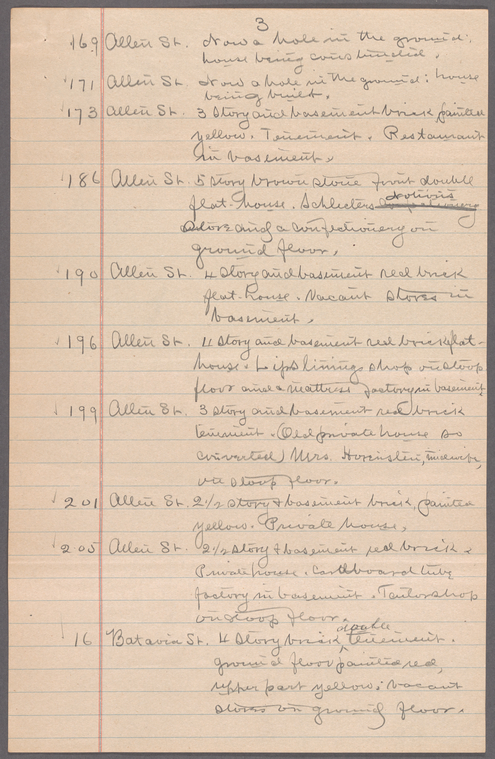 3
169 Allen St. Now a hole in the ground:
house being constructed.
171 Allen St. Now a hole in the ground: house
being built.
173 Allen St. 3 story and basement brick, painted
yellow. Tenement. Restaurant
in basement.
186 Allen St. 5 story brown stone front double
flat-house. Schlecters notions
store and a confectionery on
ground floor.
190 Allen St. 4 story and basement red brick
flat-house. Vacant stores in
basement.
196 Allen St. 4 story and basement red brick flat-
house. Lipslinings shop on stoop
floor and a mattress factory in basement.
199 Allen St. 3 story and basement red brick
tenement. (Old private house so
converted) Mrs. Hornstein, midwife,
on stoop floor.
201 Allen St. 2½ story & basement brick, painted
yellow. Private house.
205 Allen St. 2½ story & basement red brick.
Private house. Cardboard tube
factory in basement. Tailor shop
on stoop floor.
16 Batavia St. 4 story brick double tenement.
ground floor painted red,
upper part yellow: vacant
stores on ground floor.